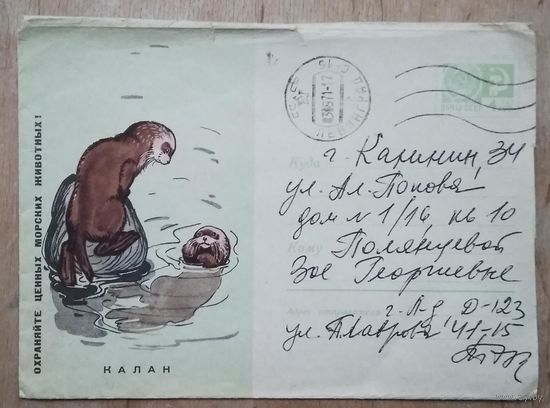 ОХРАНЯЙТЕ ЦЕННЫХ МОРСКИХ ЖИВОТНЫХ!
КАЛАН
Куда г. Калинин, 34
ул. Ал. Попова
дом № 1/16, кв 10
Кому Полянцевой
Зое Георгиевне
Адрес отправителя г. Л-д Д-123
ул. Таврова 41-15